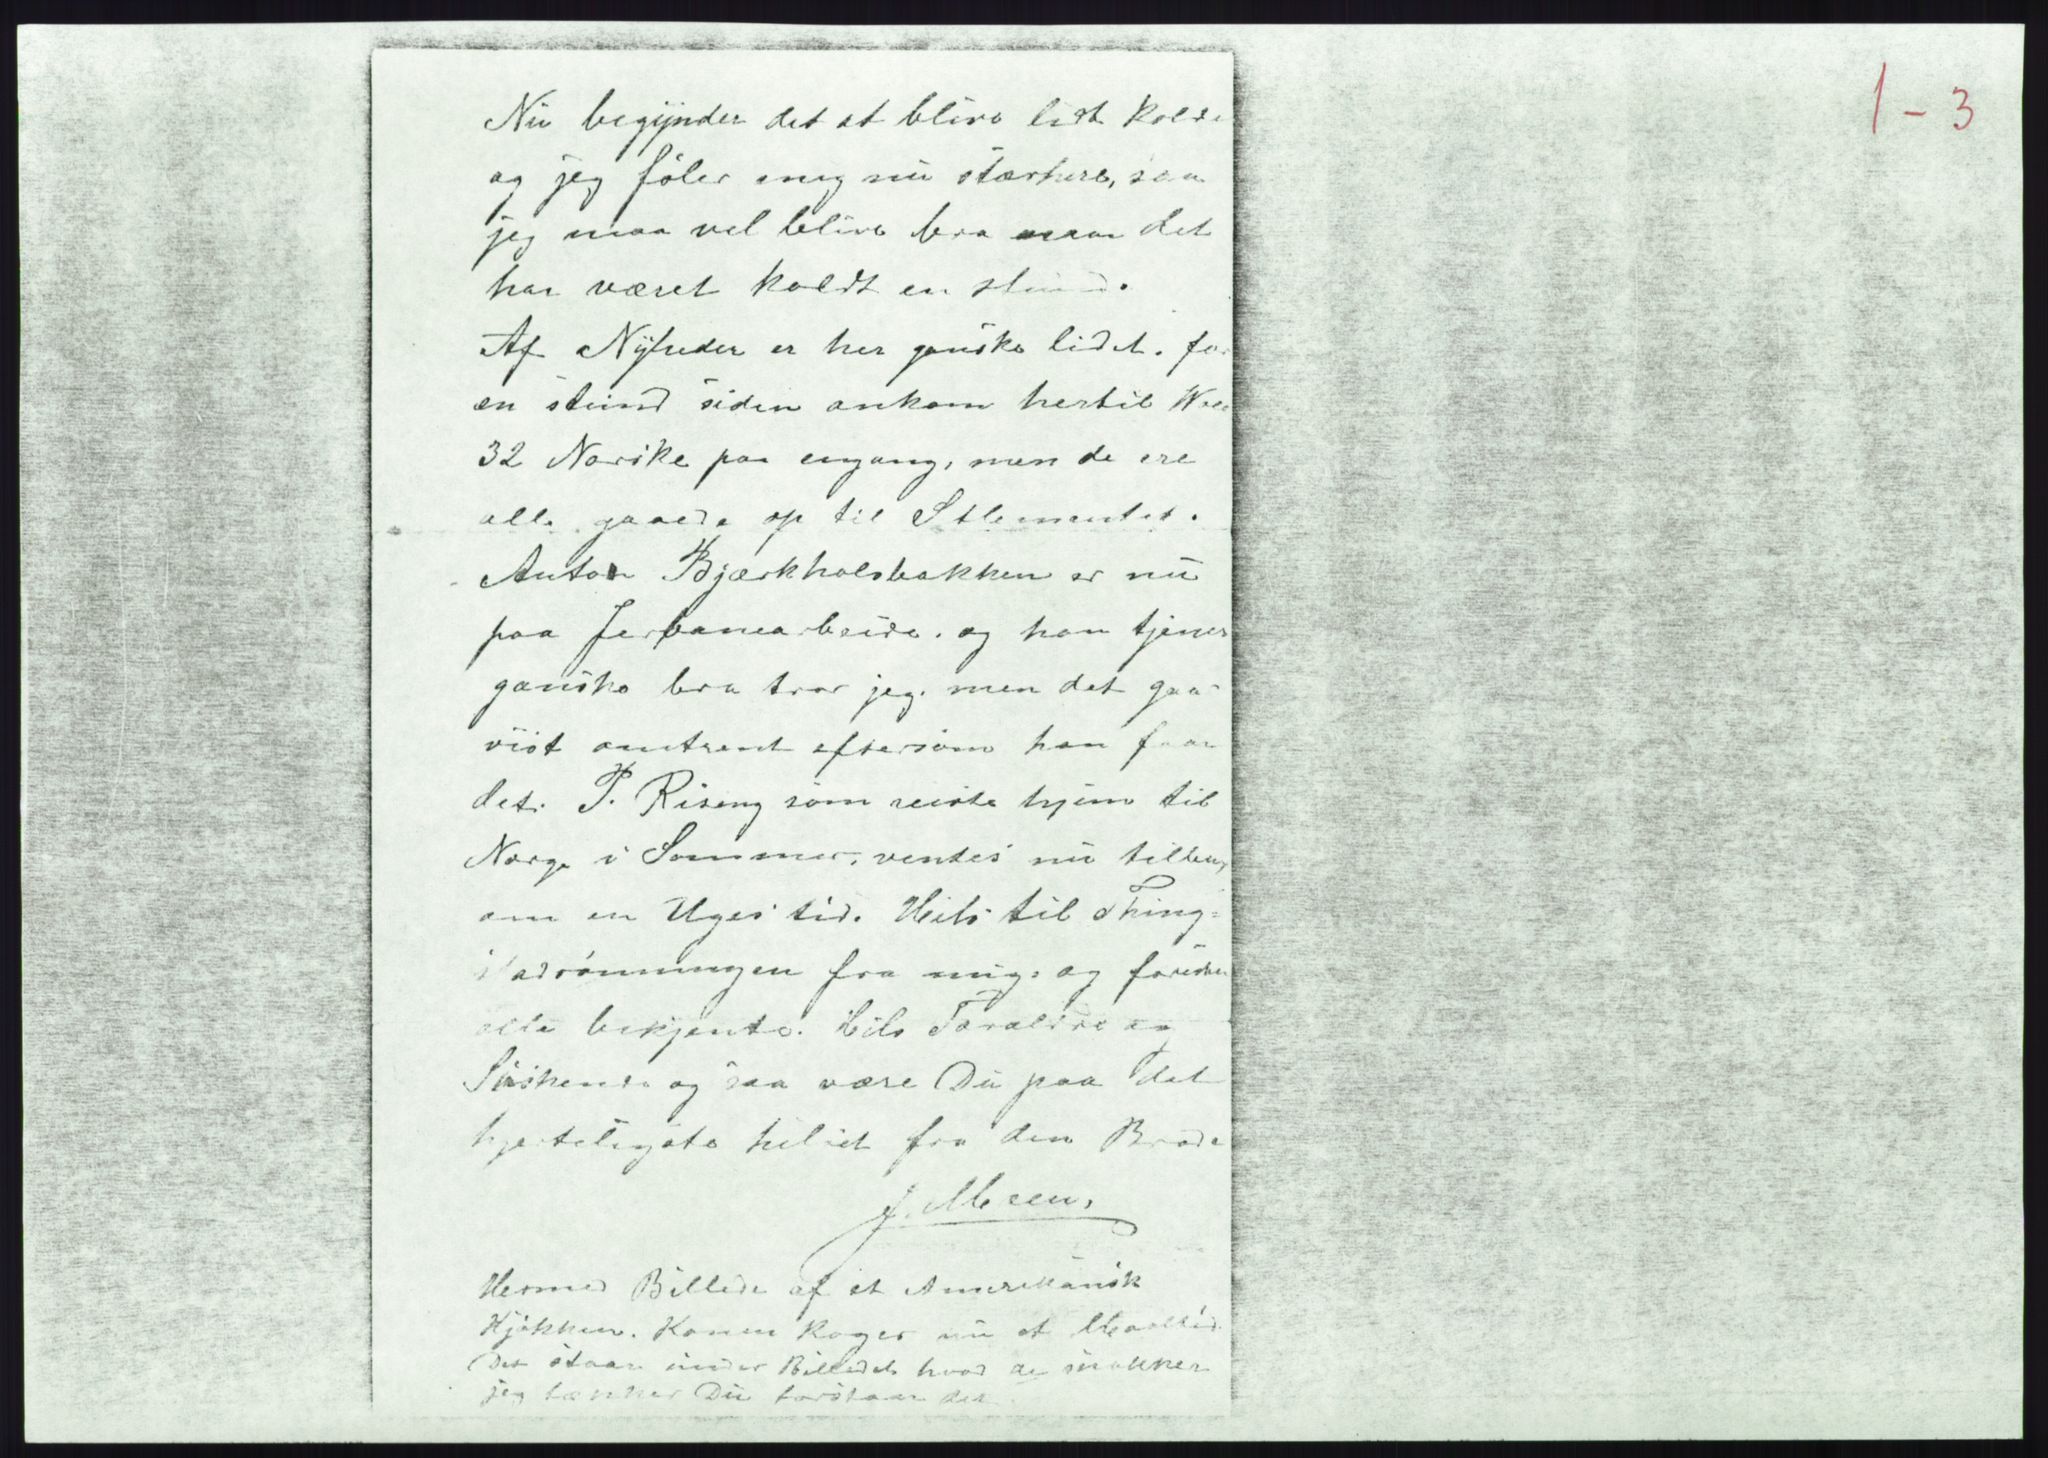 1-3
Nu begÿnder det at blive lidt
og jeg føler mig nu stærkere, saa
jeg maa vel blive bra naar det
har været koldt en stund.
Af Nÿheder er her ganske lidet. for
en stund siden ankom hertil
32 Norske paa engang, men de ere
alle gaaede op til Stlementet.
Anton Bjærkholsbakken er nu
paa Jerbanearbeide. og han tjener
ganske bra tror jeg. men det gaar
vist omtrent eftersom han faar
det. P. Riseng som reiste hjem til
Norge i Sommer, ventes nu
om en Uges tid. Hils til Thing=
stadrønningen fra mig. og
alle bekjente. Hils Foraldre og
Søskende og saa være Du paa det
hjerteligste hilset fra den
J. Moen.
Hermed Billede af et Amerikansk
Kjøkken. Konen koger nu et Maaltid.
Det staar under Billedet hvad de snakker
jeg tænker Du forstaar det.